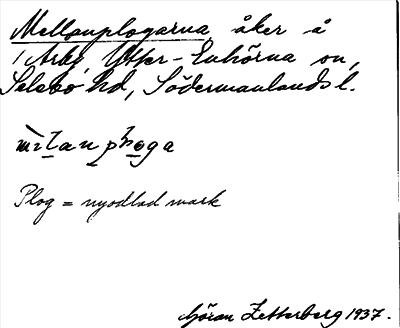 Mellanplogarna åker å
1 Arby, Ytter-Enhörna sn,
Selebo hd, Södermanlands l.
Plog = nyodlad mark
Göran Zetterberg 1937.